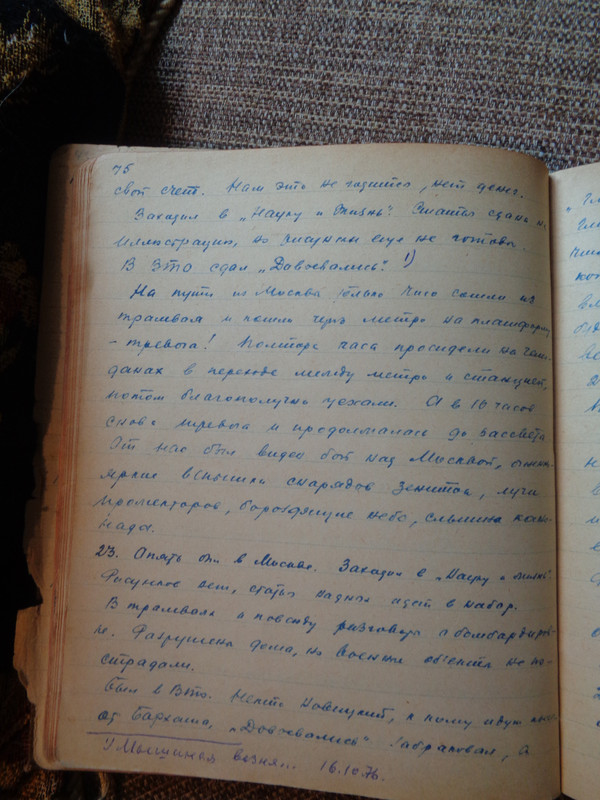 75
свой счет. Нам это не годится, нет денег.
Заходил в „Науку и Жизнь". Статьи сданы на
иллюстрацию, но рисунки еще не готовы.
В ВТО сдал „Довоевались". 1)
На пути из Москвы только что сошли из
трамвая и пошли через метро на платформу
- тревога! Полтора часа просидели на чемо-
данах в переходе между метро и станцией,
потом благополучно уехали. А в 10 часов
снова тревога и продолжалась до рассвета.
От нас был виден бой над Москвой,
яркие вспышки снарядов зениток, лучи
прожекторов, бороздящие небо, слышна кано-
нада.
23. Опять был в Москве. Заходил в „Науку и жизнь".
Рисунков нет, статьи идет в набор.
В трамваях и повсюду разговоры о бомбардиров-
ке. Разрушены дома, но военные объекты не по-
страдали.
Был в ВТО. Некто Новицкий, к кому
от Бархаша, „Довоевались" забраковал, а
1) Мышиная возня... 16.10.76.